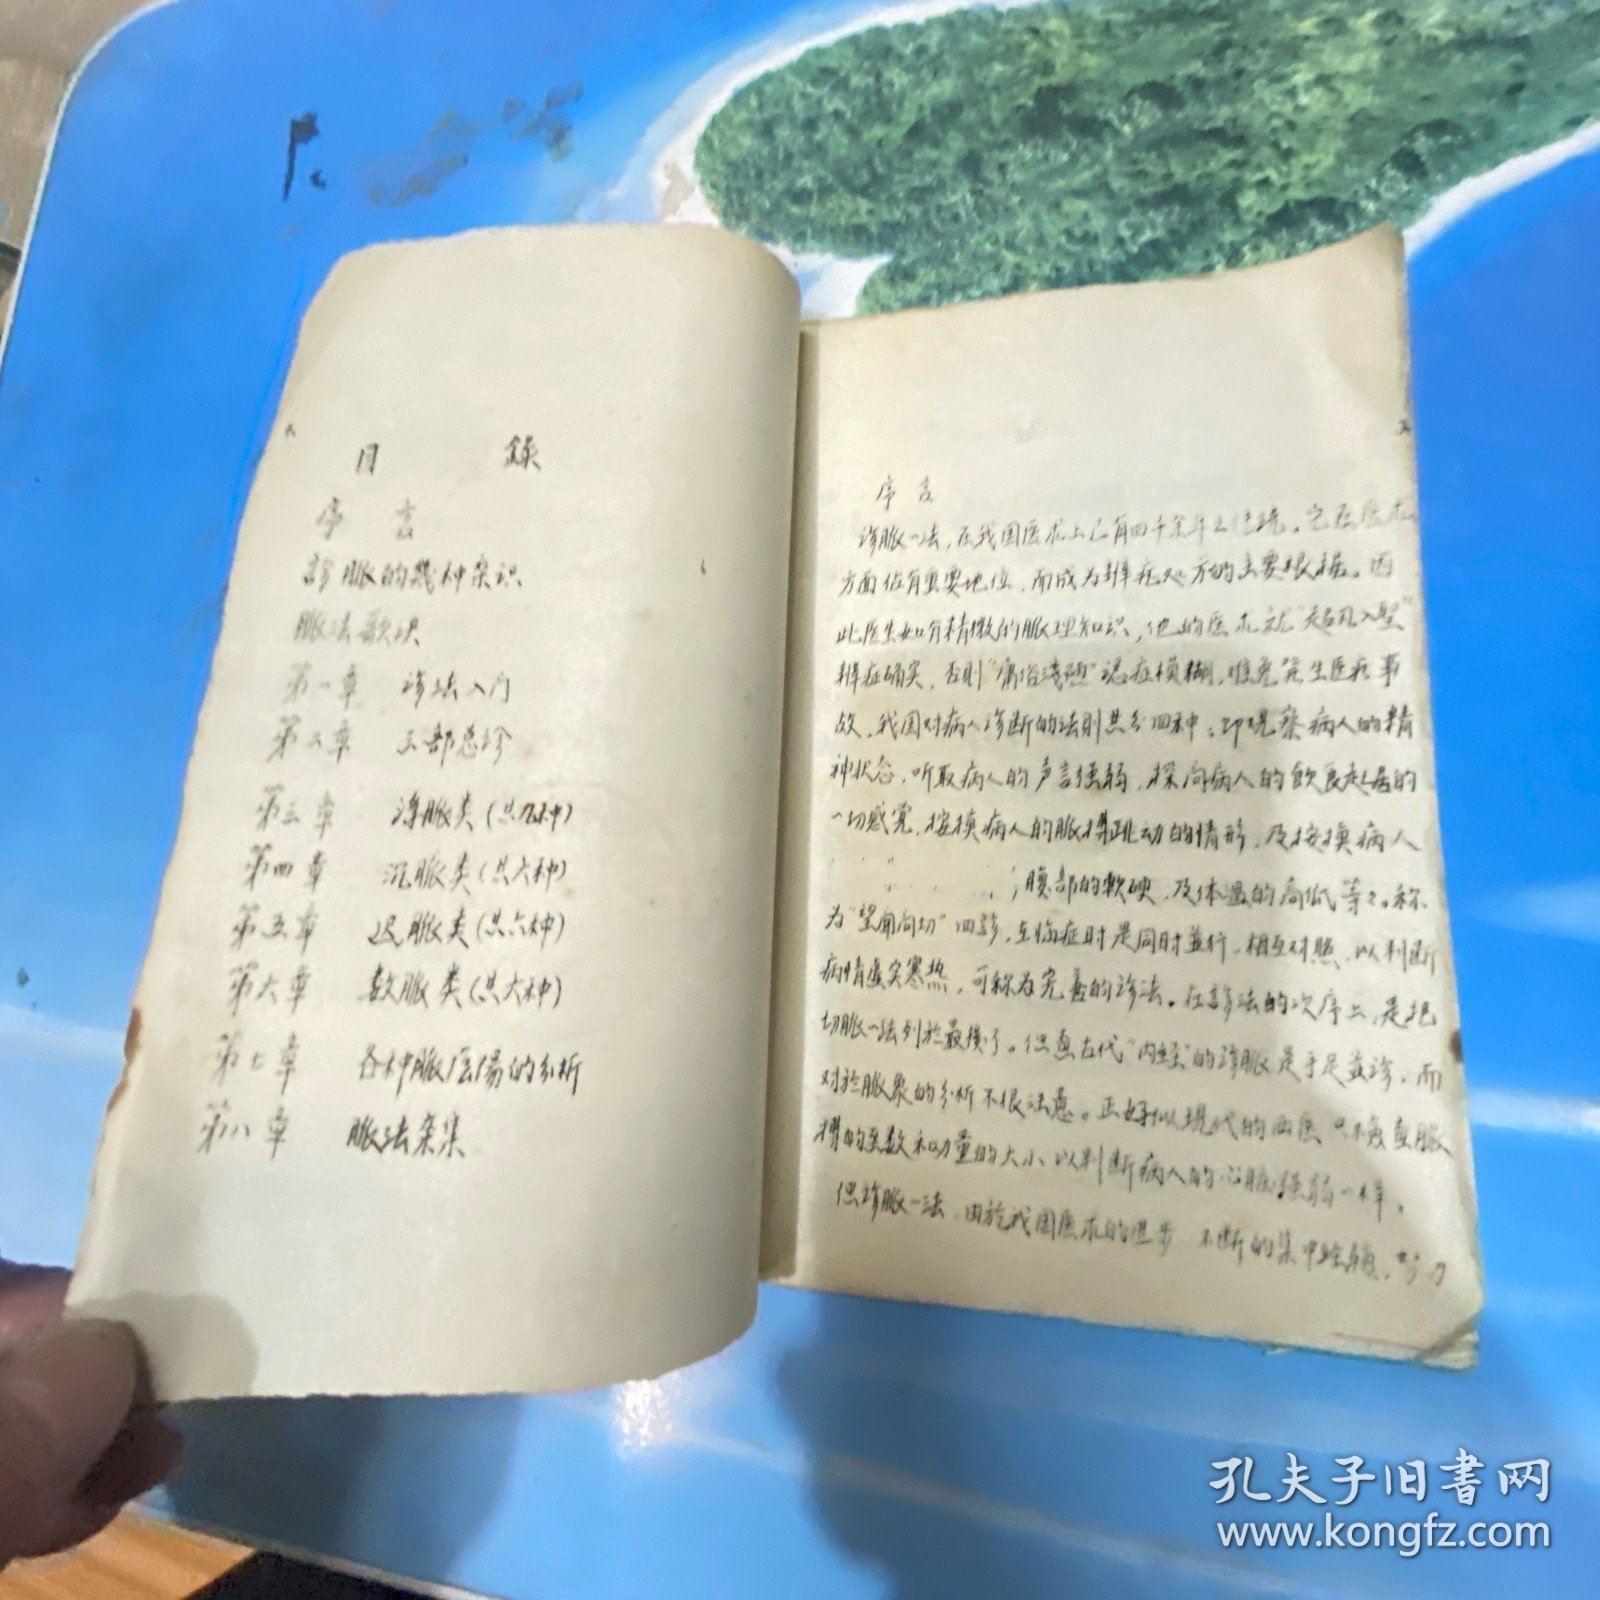 目 錄
序 言
診脈的幾种杂识
脈法歌诀
第一章 诊法入门
第二章 三部总诊
第三章 浮脈类(共九种)
第四章 沉脈类(共六种)
第五章 迟脈类(共六种)
第六章 数脈类(共六种)
第七章 各种脈陰陽的分析
第八章 脈法杂集
序 言
诊脈一法,在我国医术上已有四千余年之传流。它在医术
方面佔有重要地位,而成为辨症处方的主要根据。因
此医生如有精微的脈理知识,他的医术就"超凡入聖"
辨症确实,否则"庸俗浅陋"认症模糊,难免发生医疗事
故。我国对病人诊断的法则共分四种:即观察病人的精
神状态,听取病人的声言强弱,探问病人的飲食起居的
一切感觉,按摸病人的脈搏跳动的情形,及按摸病人
腹部的軟硬,及体温的高低等等。称
为"望聞问切"四診,在临症时是同时並行,相互对照,以判断
病情虚实寒热,可称为完善的诊法。在診法的次序上,是把
切脈一法列於最後了。但查古代"内经"的诊脈是手足並诊,而
对於脈象的分析不很注意。正好似现代的西医只注重脈
搏的至数和动量的大小,以判断病人的心脏强弱一样。
但诊脈一法,由於我国医术的进步 不断的集中经驗,
孔夫子旧書网
www.kongfz.com